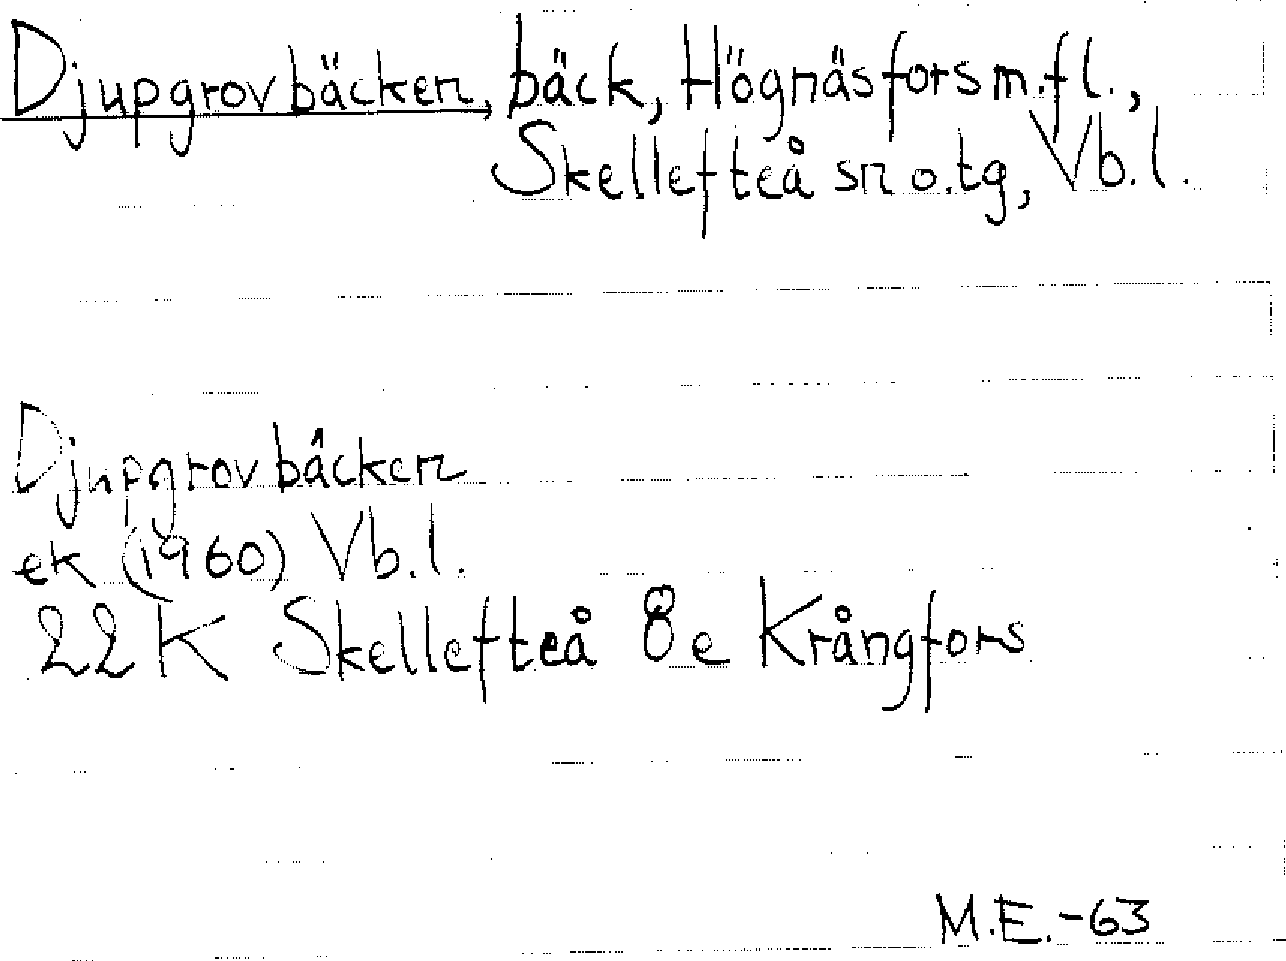 Djupgrovbäcken, bäck, Högnäsfors m.fl.,
Skellefteå sn o. tg, Vb.l.
Djupgrovbäcken
ek (1960) Vb.l.
22K Skellefteå 8e Krångfors
M.E.-63